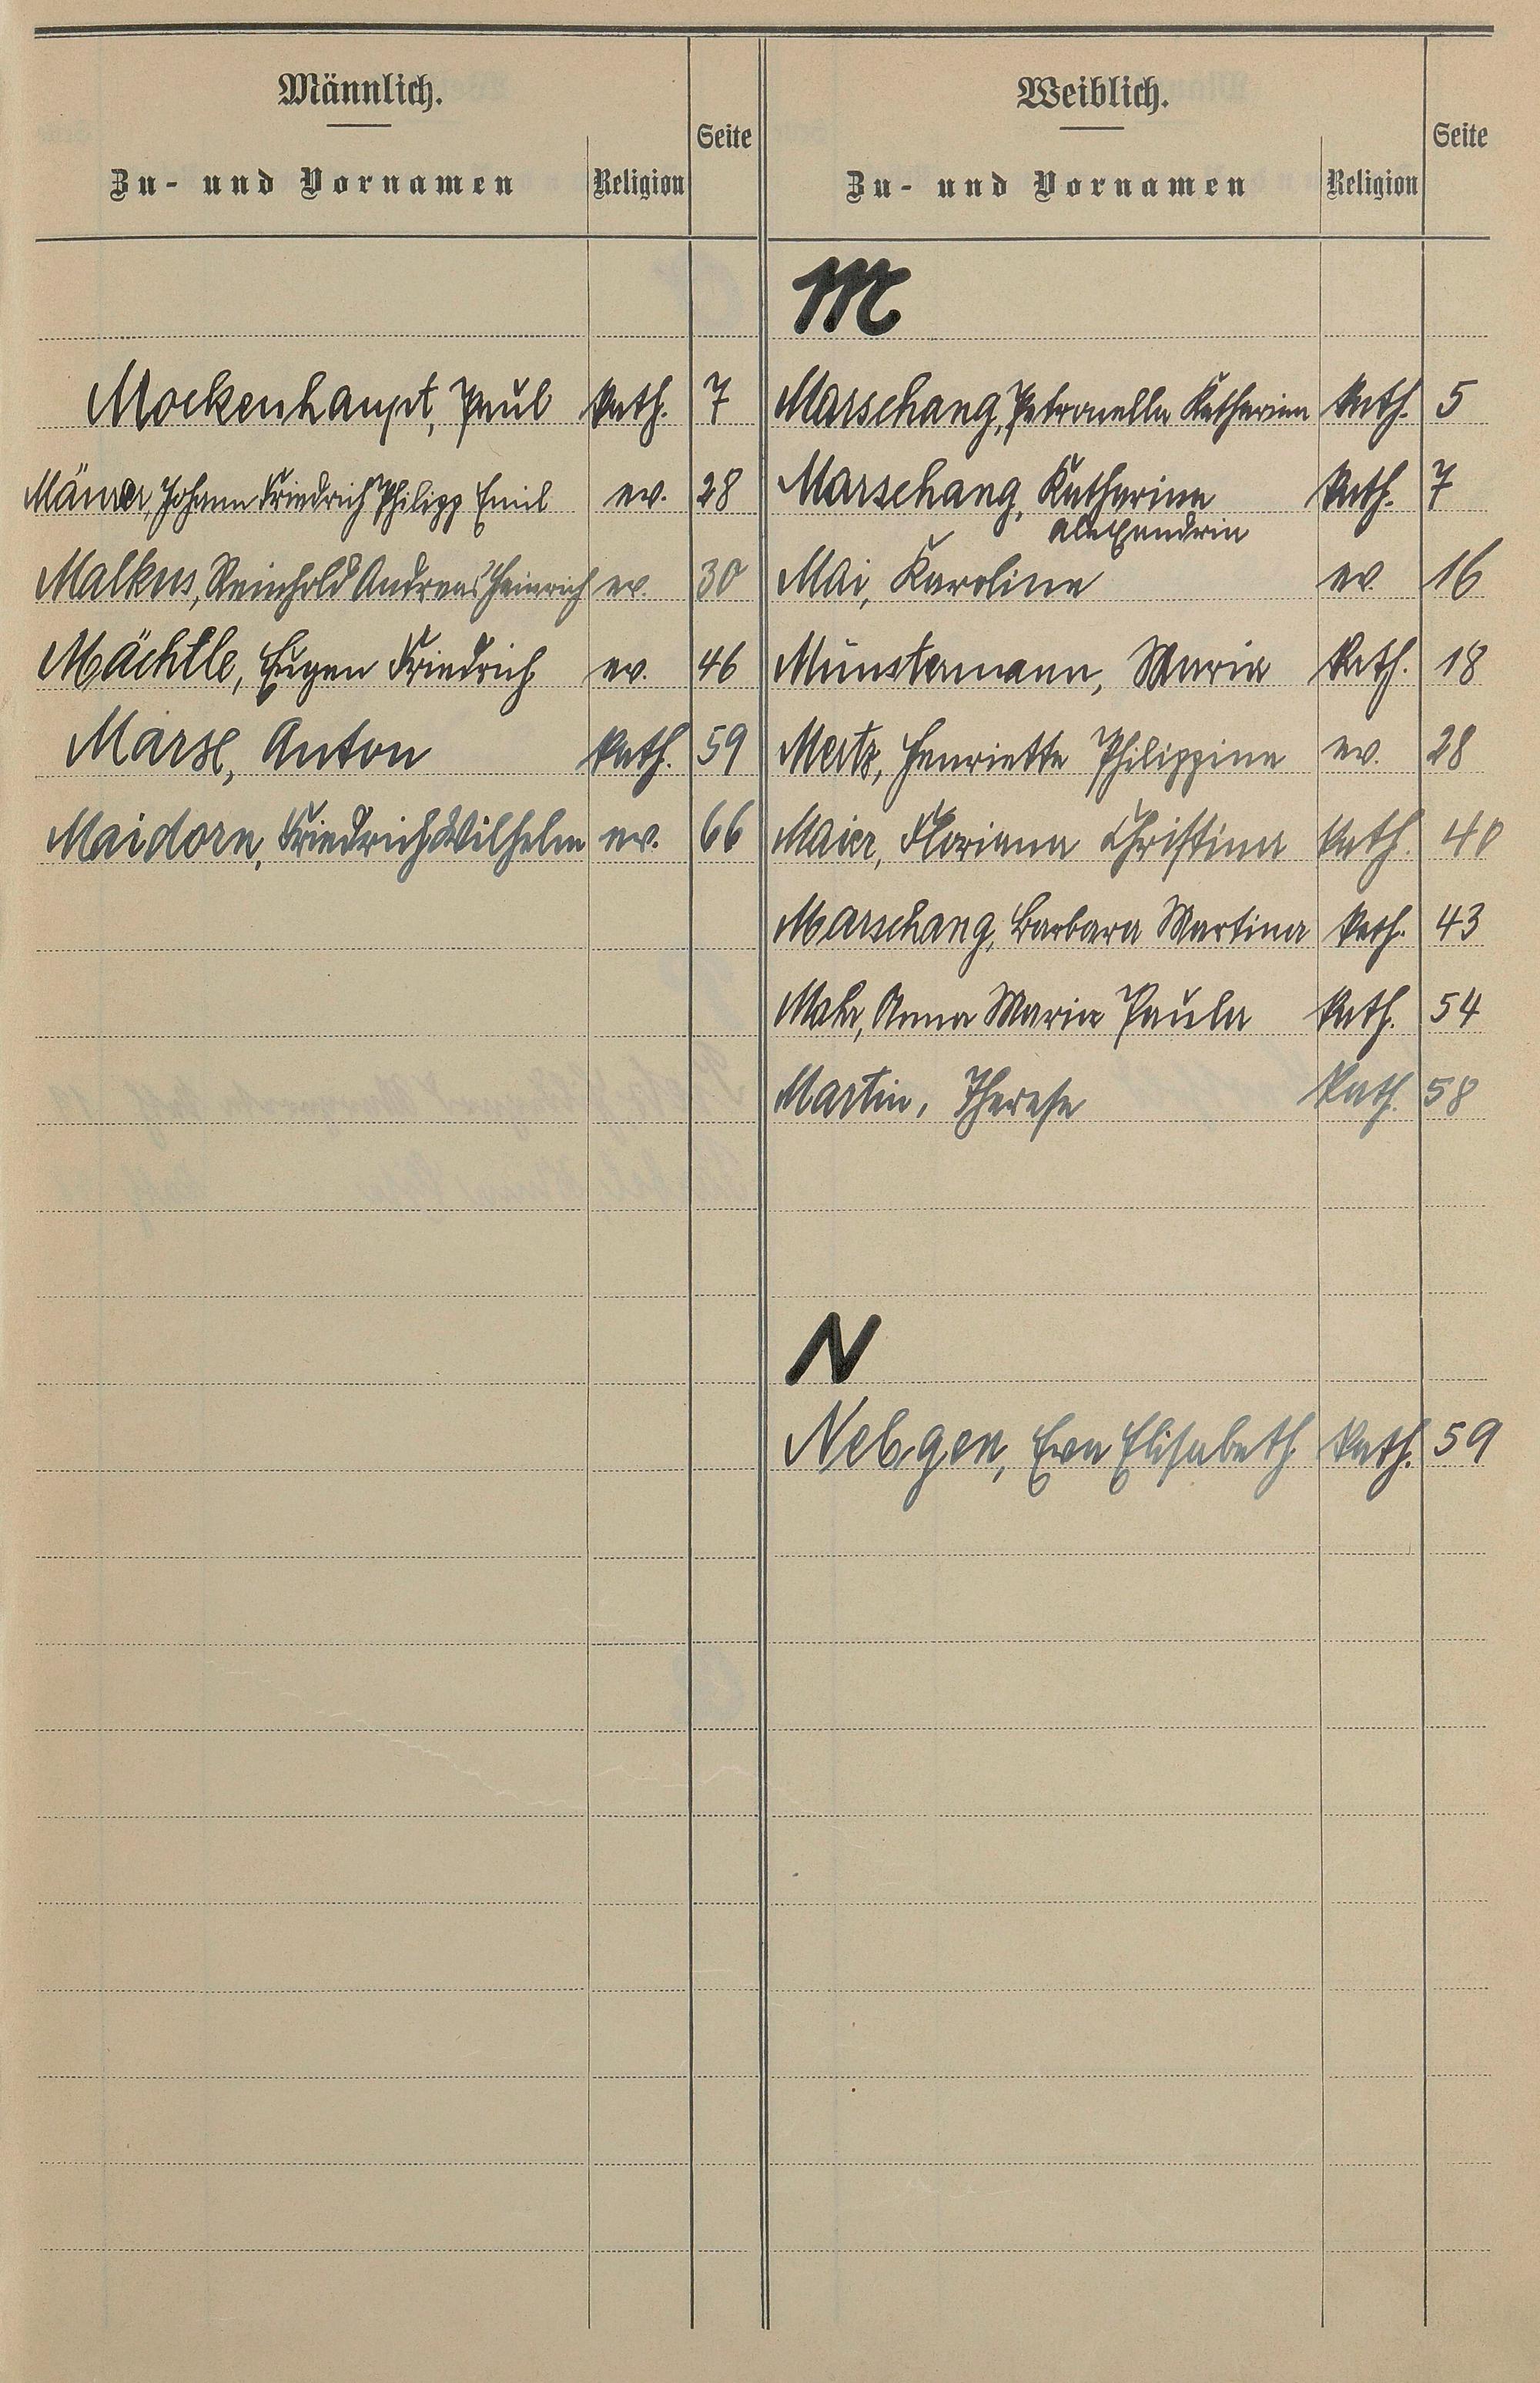 Männlich.
Zu- und Vornamen Religion Seite
Mockenhaupt, Paul kath. 7
Männer, Johann Friedrich Philipp Emil ev. 28
Malkus, Reinhold Andreas Heinrich ev. 30
Mächtle, Eugen Friedrich ev. 46
Marx, Anton kath. 59
Maidorn, Friedrich Wilhelm ev. 66
Weiblich.
Zu- und Vornamen Religion Seite
M
Marschang, Petronella Katharina kath. 5
Marschang, Katharina kath. 7
Alexandrin
Mai, Karoline ev. 16
Münstermann, Maria kath. 18
Mertz, Henriette Philippine ev. 28
Maier, Floriana Christina kath. 40
Marschang, Barbara Martina kath. 43
Mahr, Anna Maria Paula kath. 54
Martin, Therese kath. 58
N
Nebgen, Eva Elisabeth kath. 59